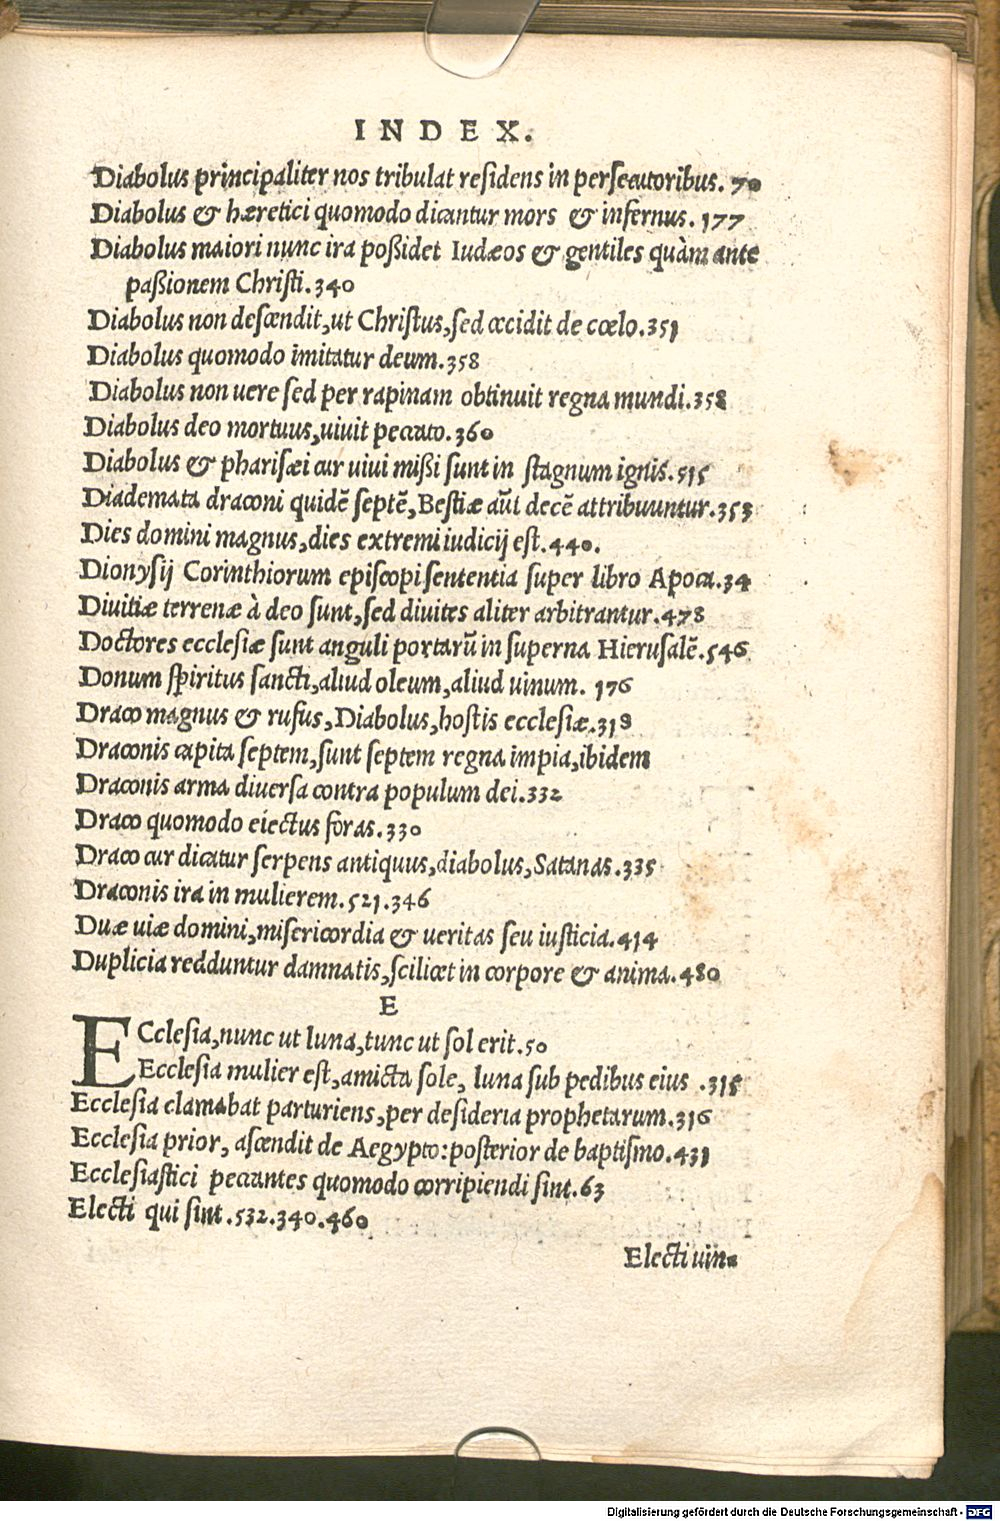 INDEX.
Diabolus principaliter nos tribulat residens in persecutoribus. 70
Diabolus & hæretici quomodo dicantur mors & infernus. 177
Diabolus maiori nunc ira poßidet Iudæos & gentiles quàm ante
paßionem Christi.340
Diabolus non descendit,ut Christus,sed cecidit de cœlo.351
Diabolus quomodo imitatur deum.358
Diabolus non uere sed per rapinam obtinuit regna mundi.358
Diabolus deo mortuus,uiuit peccato.360
Diabolus & pharisæi cur uiui mißi sunt in stagnum ignis.515
Diademata draconi quidē septē,Bestiæ aūt decē attribuuntur.353
Dies domini magnus,dies extremi iudicij est.440.
Dionysij Corinthiorum episcopi sententia super libro Apoca.34
Diuitiæ terrenæ à deo sunt,sed diuites aliter arbitrantur.478
Doctores ecclesiæ sunt anguli portarū in superna Hierusalē.546
Donum spiritus sancti,aliud oleum,aliud uinum. 176
Draco magnus & rufus,Diabolus,hostis ecclesiæ.318
Draconis capita septem,sunt septem regna impia,ibidem
Draconis arma diuersa contra populum dei.332
Draco quomodo eiectus foras.330
Draco cur dicatur serpens antiquus,diabolus,Satanas.335
Draconis ira in mulierem.521.346
Duæ uiæ domini,misericordia & ueritas seu iusticia.414
Duplicia redduntur damnatis,scilicet in corpore & anima.480
E
ECclesia,nunc ut luna,tunc ut sol erit.50
Ecclesia mulier est,amicta sole, luna sub pedibus eius .315
Ecclesia clamabat parturiens,per desideria prophetarum.316
Ecclesia prior, ascendit de Aegypto:posterior de baptismo.431
Ecclesiastici peccantes quomodo corripiendi sint.63
Electi qui sint.532.340.460
Electi uin-
Digitalisierung gefördert durch die Deutsche Forschungsgemeinschaft - DFG